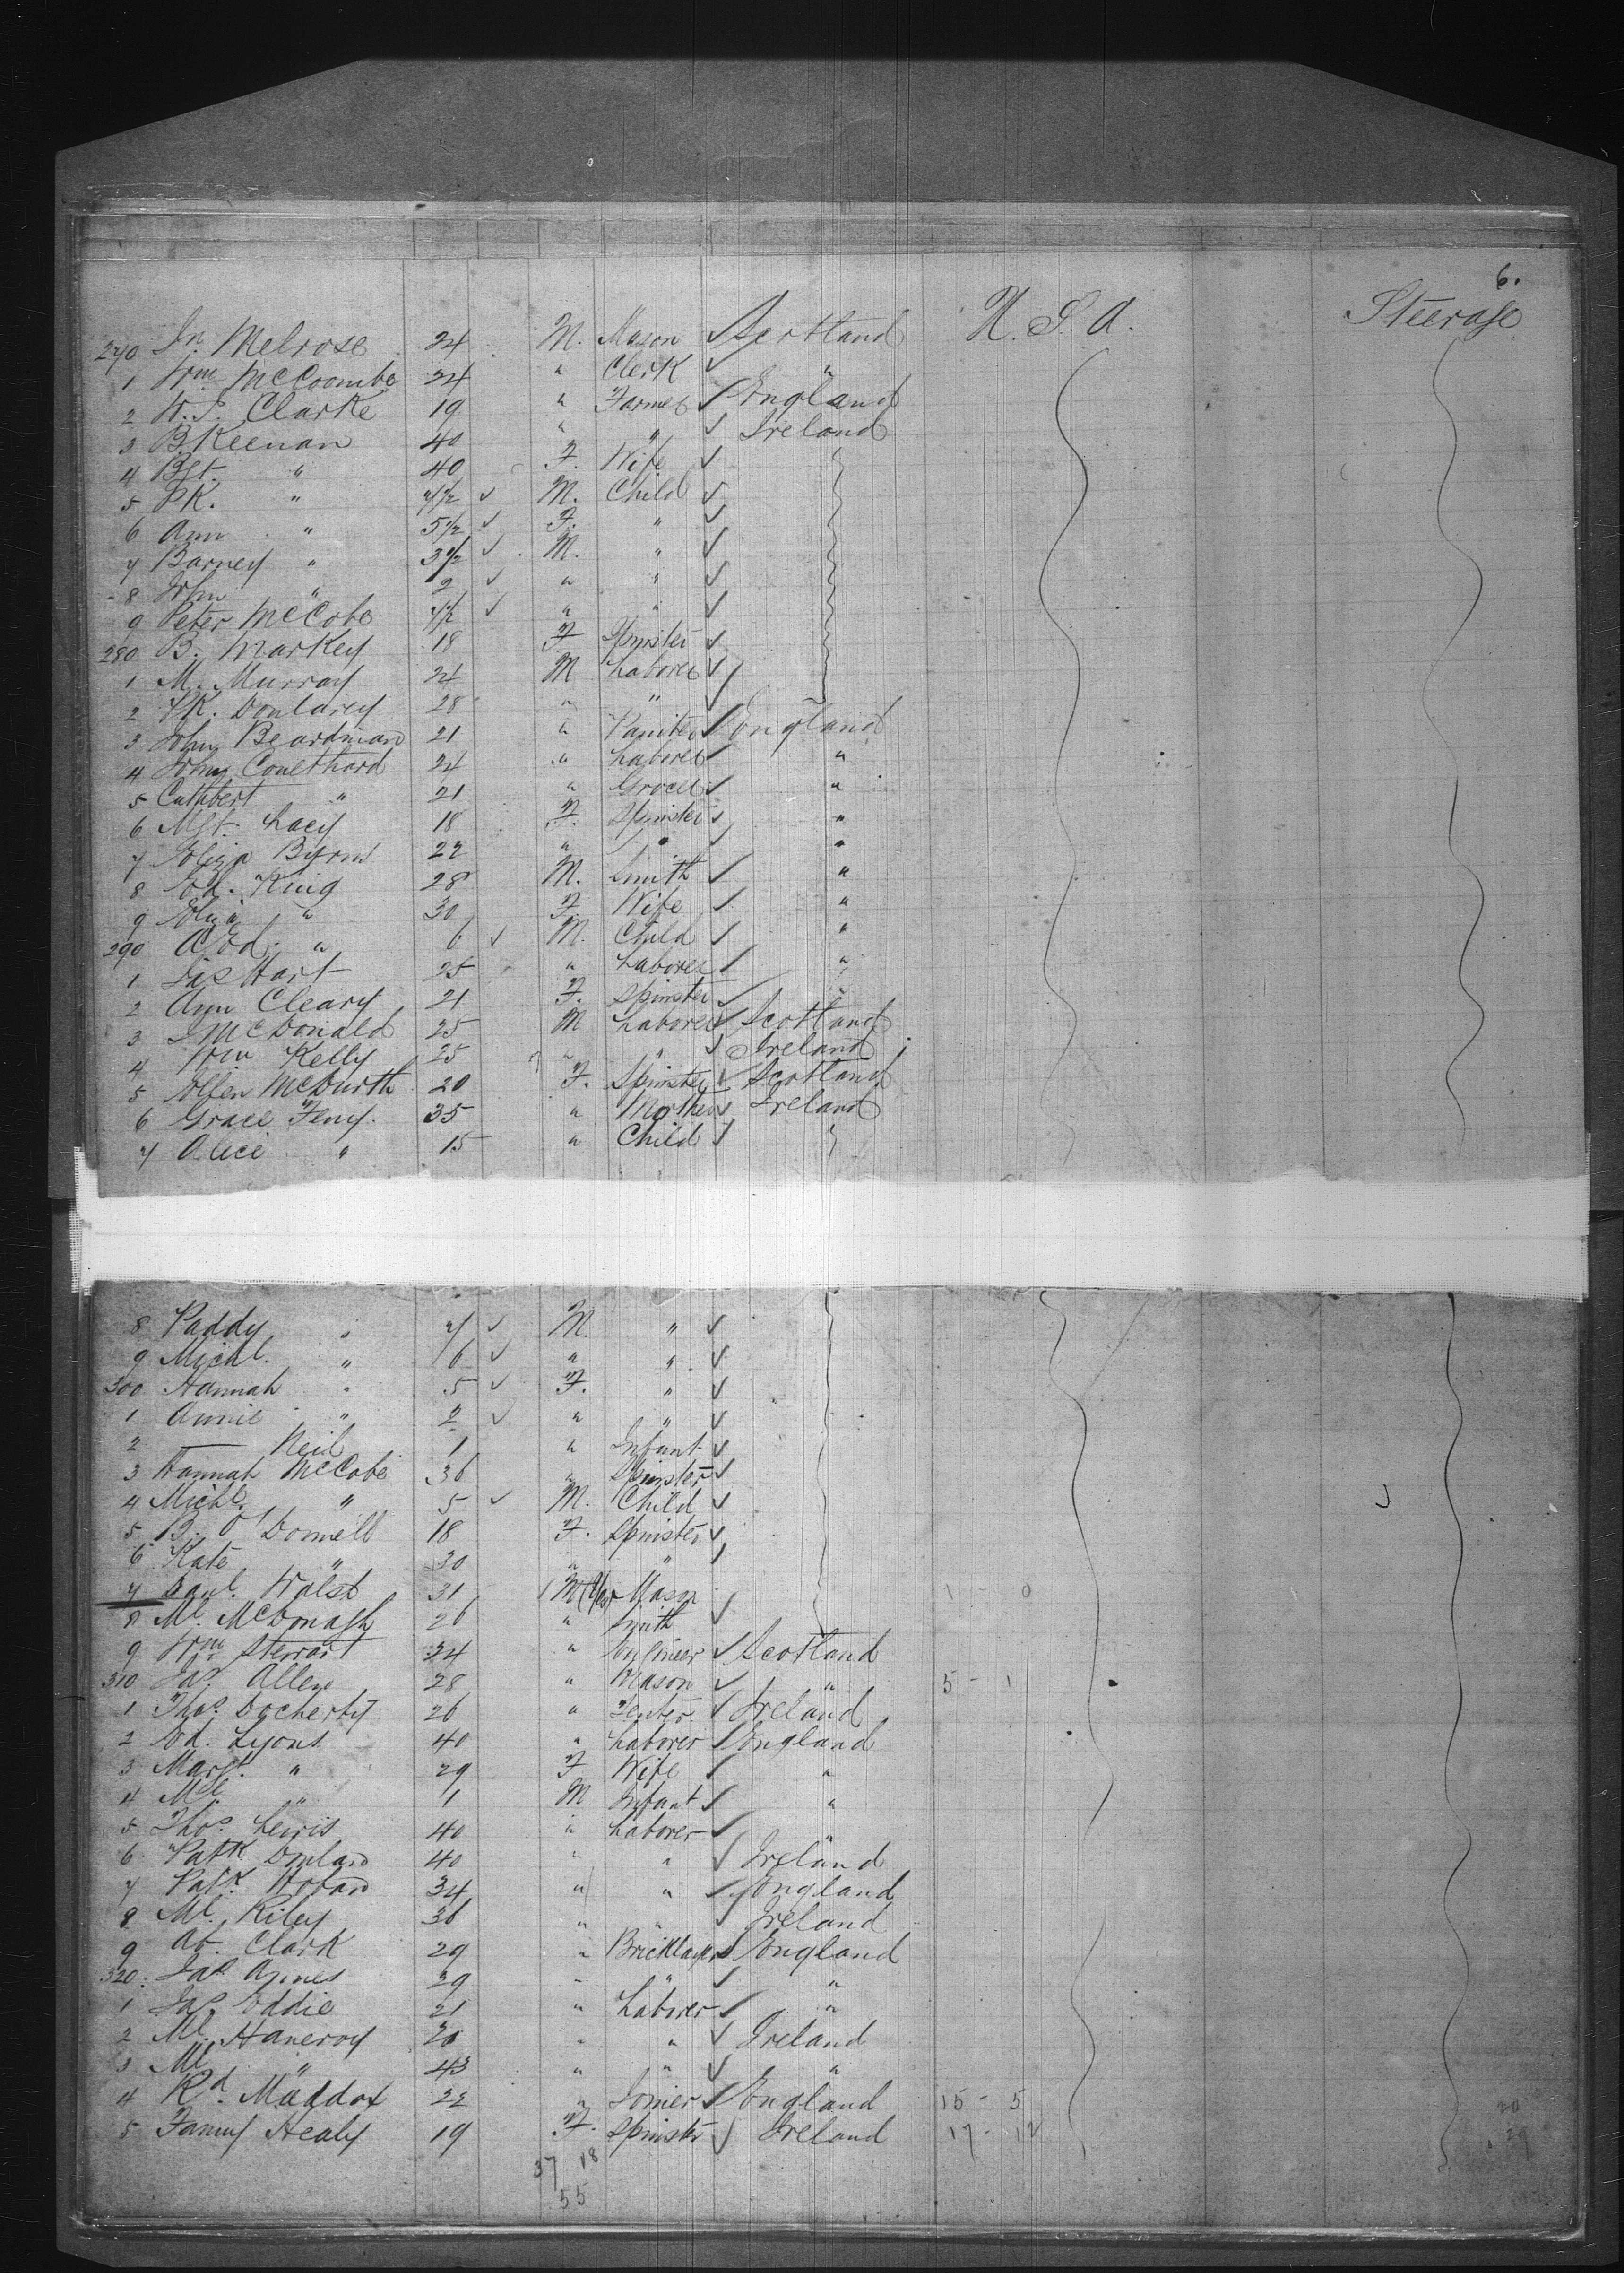 6.
270 Jn. Melrose 24 M. Mason ✓ Scotland U.S.A. Steerage
1 Wm McCoombe 24 " Clerk ✓ "
2 W.J. Clarke 19 " Farmer ✓ England
3 B. Keenan 40 " " ✓ Ireland
4 Bgt. " 40 F. Wife ✓
5 PK. " 7 1/2 ✓ M. Child ✓
6 Ann " 5 1/2 ✓ F. " ✓
7 Barney " 3 1/2 ✓ M. " ✓
8 John " 2 ✓ " " ✓
9 Peter McCabe ✓ " " ✓
280 B. Markey 18 F. Spinster ✓
1 M. Murray 24 M Laborer ✓
2 PK. 28 " " ✓
3 John Beardman 21 " Painter ✓ England
4 John Coulthard 24 " Laborer ✓ "
5 Cuthbert " 21 " Grocer ✓ "
6 Mgt. Lacy 18 F. Spinster ✓ "
7 Eliza Byrns 22 " " ✓ "
8 Ed. King 28 M. Smith ✓ "
9 Eliza " 30 F. Wife ✓ "
290 Ed. " 6 ✓ M. Child ✓ "
1 Jas Hart 25 " Laborer ✓ "
2 Ann Cleary 21 F. Spinster ✓ "
3 J McDonald 25 M Laborer ✓ Scotland
4 Wm Kelly 25 " " ✓ Ireland
5 Ellen 20 F. Spinster ✓ Scotland
6 Grace Feny. 35 " Mother ✓ Ireland
7 Alice " 15 " Child ✓
8 Paddy " 7 ✓ M. " ✓
9 Michl. " 6 ✓ " " ✓
300 Hannah " 5 ✓ F. " ✓
1 Annie " 2 ✓ " " ✓
2 — Neil 1 " Infant ✓
3 Hannah McCabe 36 " Spinster ✓
4 Michl. " 5 ✓ M. Child ✓
5 B. O'Donnell 18 F. Spinster ✓
6 Kate " 30 " " ✓
7 Danl. 31 M Mason 1 0
8 Ml. McDonagh 26 " Smith ✓
9 Wm Stewart 24 " Engineer ✓ Scotland
310 Jas. Allen 28 " Mason ✓ " 5 - 1
1 Thos. Docherty 26 " ✓ Ireland
2 Ed. Lyons 40 " Laborer ✓ England
3 Margt. " 29 F Wife ✓ "
4 Ml. " 1 M Infant ✓ "
5 Thos. Lewis 40 " Laborer ✓ "
6 Patk. Donlan 40 " " ✓ Ireland
7 Patk. Hoban 34 " " ✓ England
8 Ml. Riley 36 " " ✓ Ireland
9 Ab. Clark 29 " Bricklayer ✓ England
320. Jas. 29 " " ✓ "
1 Jas. Eddie 21 " Laborer ✓ "
2 Ml. " " ✓ Ireland
3 Ml. " 43 " " ✓ "
4 Rd. Maddox 22 " Joiner ✓ England 15 - 5 20
5 Fanny Healy 19 F. Spinster ✓ Ireland 17 - 12 29
37 18
55